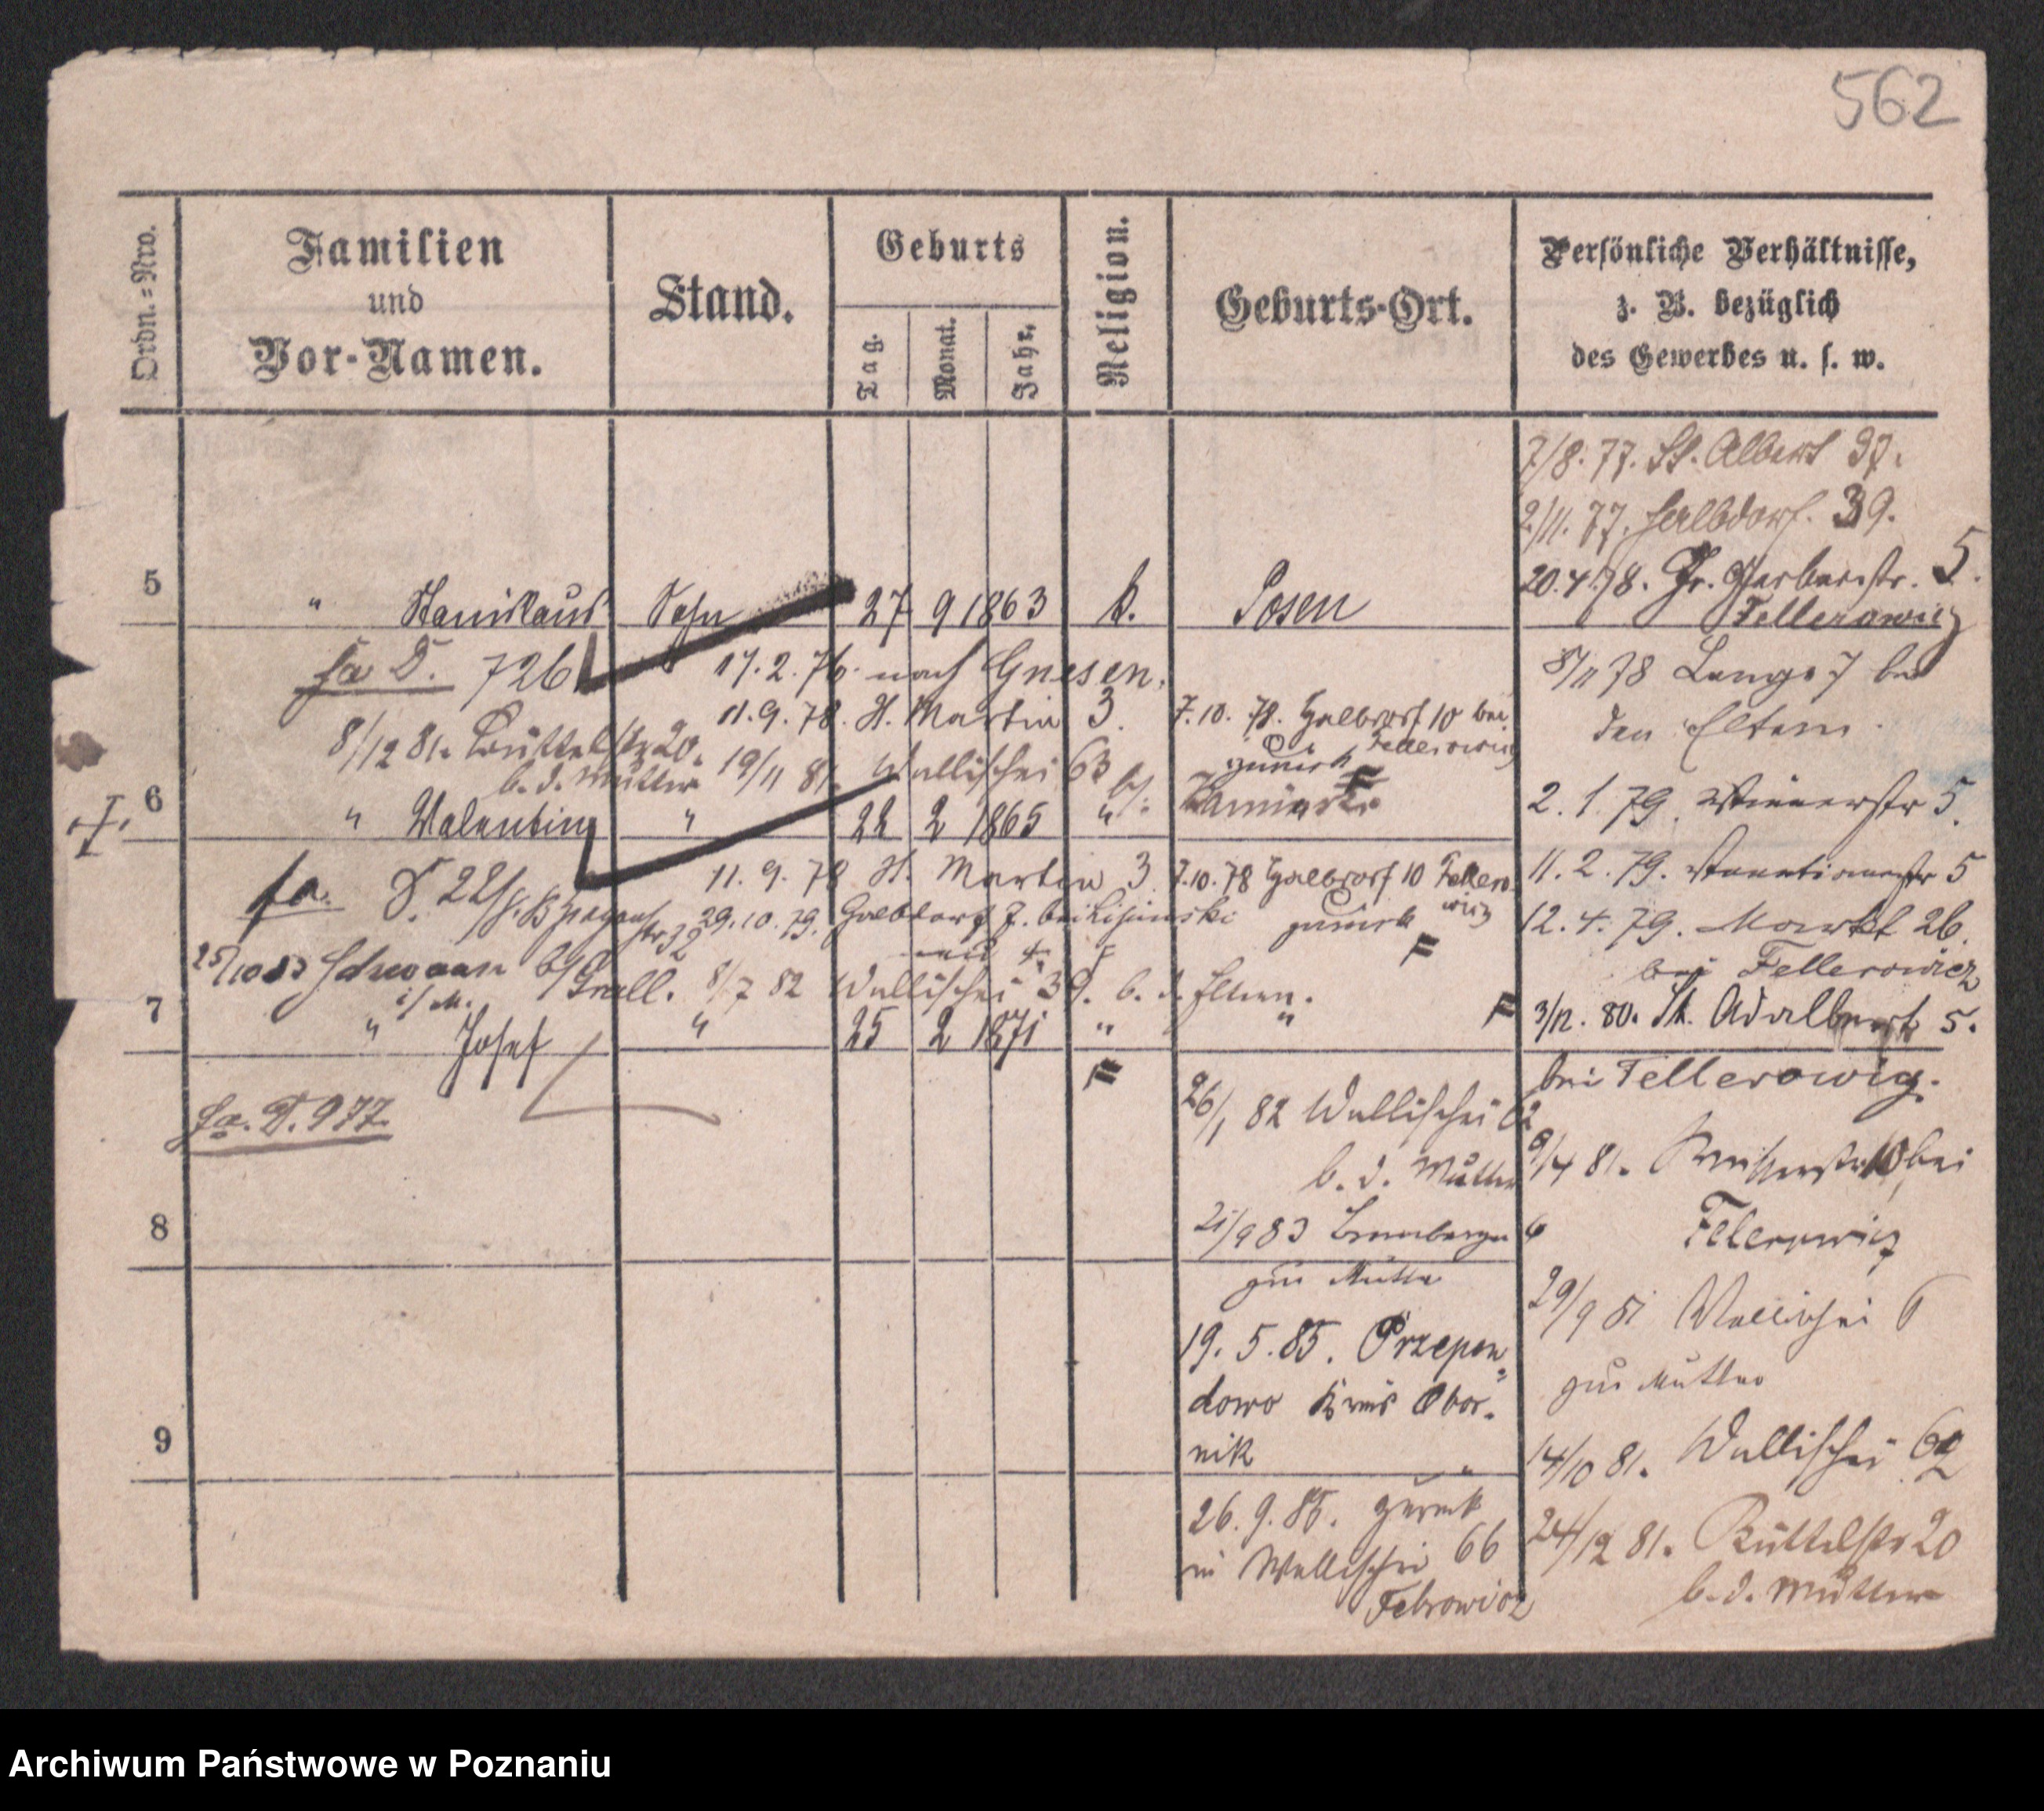 562
Ordn.=Nro.
Familien
und
Vor-Namen.
Stand.
Geburts
Tag.
Monat.
Jahr.
Religion.
Geburts-Ort.
Persönliche Verhältnisse,
z. B. bezüglich
des Gewerbes u. s. w.
7/8. 77. St. Albert 37.
2/11. 77. Halbdorf. 39.
20.4.78. Gr. Gerberstr. 5.
Fellerowicz
5 " Stanislaus Sohn 27 9 1863 k. Posen
fa D. 726
17.2.76. nach Gnesen.
8/11 78 Lange 7 bei
den Eltern.
11.9.78. St. Martin 3.
7.10.78. Halbdorf 10 bei
Fellerowicz
zurück
8/12 81. Büttelstr 20.
b. d. Mutter
19/11 81. Wallischei 63
b/.
6 " Valentin " 22 2 1865 "
2.1.79. Wienerstr 5.
fa.
11.9.78 St. Martin 3.
7.10.78 Halbdorf 10 Fellero-
wicz
zurück
11.2.79. 5
29.10.79. Halbdorf 7. bei Lipinski
12.4.79. Markt 26.
bei Fellerowicz
b/Grall.
8/7 82 Wallischei 39. b. d. Eltern.
3/12. 80. St. Adalbert 5.
7 " Josef " 25 2 1871 " "
bei Fellerowicz.
fa. D. 977.
26/1 82 Wallischei 62
b. d. Mutter
9/4 81. 10 bei
Felerowicz
8
21/9 83 Bromberger 6
zur Mutter
29/9 81 Wallischei 6
zur Mutter
19.5.85. Przepen-
dowo Kreis Obor-
nik
9
14/10 81. Wallischei 62
26.9.85. zurück
in Wallischei 66
24/12 81. Büttelstr 20
b. d. Mutter
Archiwum Państwowe w Poznaniu